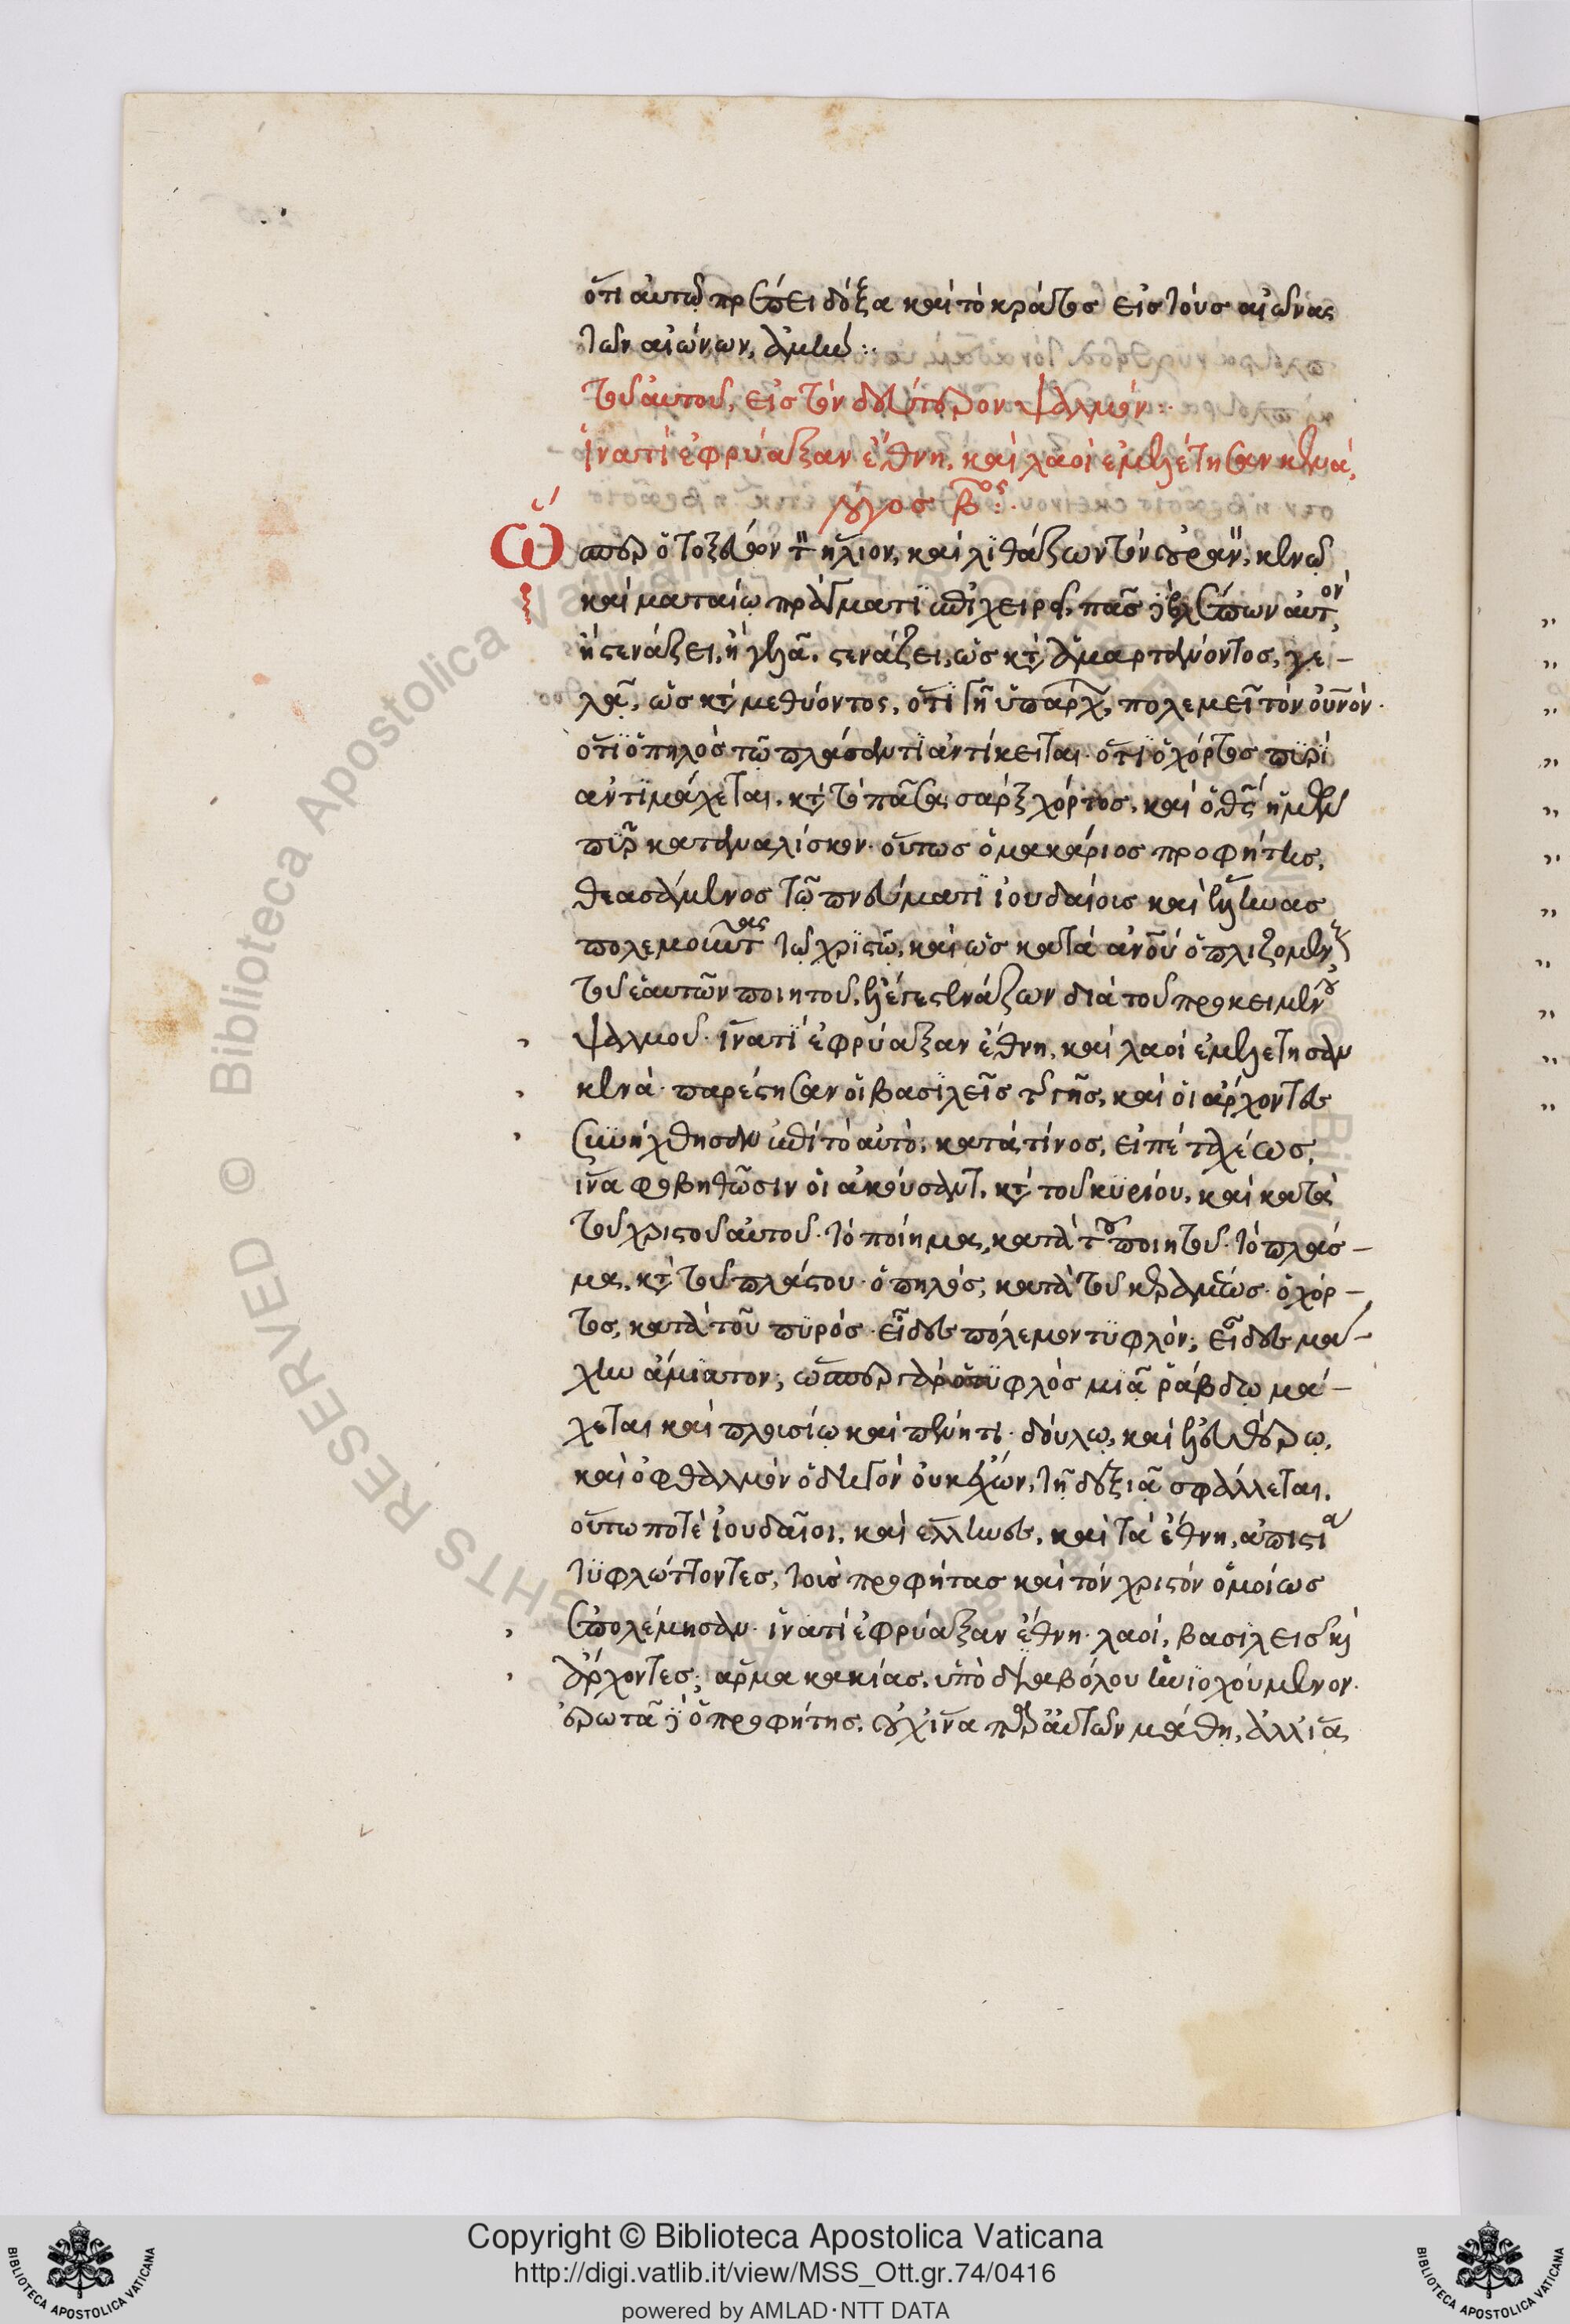 ὅτι αὐτῷ πρέπει δόξα καὶ τὸ κράτος εἰς τοὺς αἰῶνας
τῶν αἰώνων, ἀμήν :·
τοῦ αὐτοῦ, εἰς τὸν δεύτερον ψαλμόν :·
ἱνατί ἐφρύαξαν ἔθνη, καὶ λαοὶ ἐμελέτησαν κενά,
λόγος βος :·
Ὥ
σπερ ὁ τοξεύων τὸν ἥλιον, καὶ λιθάζων τὸν οὐρανόν, κενῷ
καὶ ματαίῳ πράγματι ἐπιχειρεῖ, πᾶς γὰρ βλέπων αὐτόν,
ἢ στενάζει, ἢ γελᾷ. στενάζει, ὡς κατὰ ἁμαρτάνοντος, γε-
λᾷ, ὡς κατὰ μεθύοντος, ὅτι γῆ ὑπάρχων, πολεμεῖ τὸν οὐνόν·
ὅτι ὁ πηλὸς τῷ πλάσαντι ἀντίκειται· ὅτι ὁ χόρτος πυρὶ
ἀντιμάχεται. κατὰ τὸ πᾶσα σὰρξ χόρτος, καὶ ὁ θς ἡμῶν
πῦρ καταναλίσκον· οὕτως ὁ μακάριος προφήτης,
θεασάμενος τῷ πνεύματι ἰουδαίοις καὶ ἕλληνας
πολεμοῦντας τῷ χριστῷ, καὶ ὡς κατὰ ἀνοῦ ὁπλιζομένους
τοῦ ἑαυτῶν ποιητοῦ, ἔλεγε στενάζων διὰ τοῦ προκειμένου
ψαλμοῦ· ἱνατί ἐφρύαξαν ἔθνη, καὶ λαοὶ ἐμελέτησαν
κενά· παρέστησαν οἱ βασιλεῖς τῆς γῆς, καὶ οἱ ἄρχοντες
συνήχθησαν ἐπὶ τὸ αὐτό, κατά τίνος, εἰπὲ τελέως,
ἵνα φοβηθῶσιν οἱ ἀκούσαντες, κατὰ τοῦ κυρίου, καὶ κατὰ
τοῦ χριστοῦ αὐτοῦ· τὸ ποίημα, κατὰ τοῦ ποιητοῦ· τὸ πλάσ-
μα, κατὰ τοῦ πλάστου· ὁ πηλός, κατὰ τοῦ κεραμέως· ὁ χόρ-
τος, κατὰ τοῦ πυρός· εἶδες πόλεμον τυφλόν; εἶδες μά-
χην ἀνίατον; ὥσπερ γὰρ ὁ τυφλὸς μιᾷ ῥάβδῳ μά-
χεται καὶ πλουσίῳ καὶ πένητι· δούλῳ, καὶ ἐλευθέρῳ,
καὶ ὀφθαλμὸν ὁδηγὸν οὐκ ἔχων, τῇ δεξιᾷ σφάλλεται.
οὕτω ποτὲ ἰουδαῖοι, καὶ ἕλληνες, καὶ τὰ ἔθνη, ἀπιστίᾳ
τυφλώττοντες, τοὺς προφήτας καὶ τὸν χριστὸν ὁμοίως
ἐπολέμησαν· ἱνατί ἐφρύαξαν ἔθνη· λαοί, βασιλεῖς καὶ
ἄρχοντες; ἅρμα κακίας, ὑπὸ διαβόλου ἡνιοχούμενον·
ἐρωτᾷ γὰρ ὁ προφήτης, οὐχ ἵνα παρ' αὐτῶν μάθῃ, ἀλλ' ἵνα
Copyright © Biblioteca Apostolica Vaticana
http://digi.vatlib.it/view/MSS_Ott.gr.74/0416
powered by AMLAD·NTT DATA